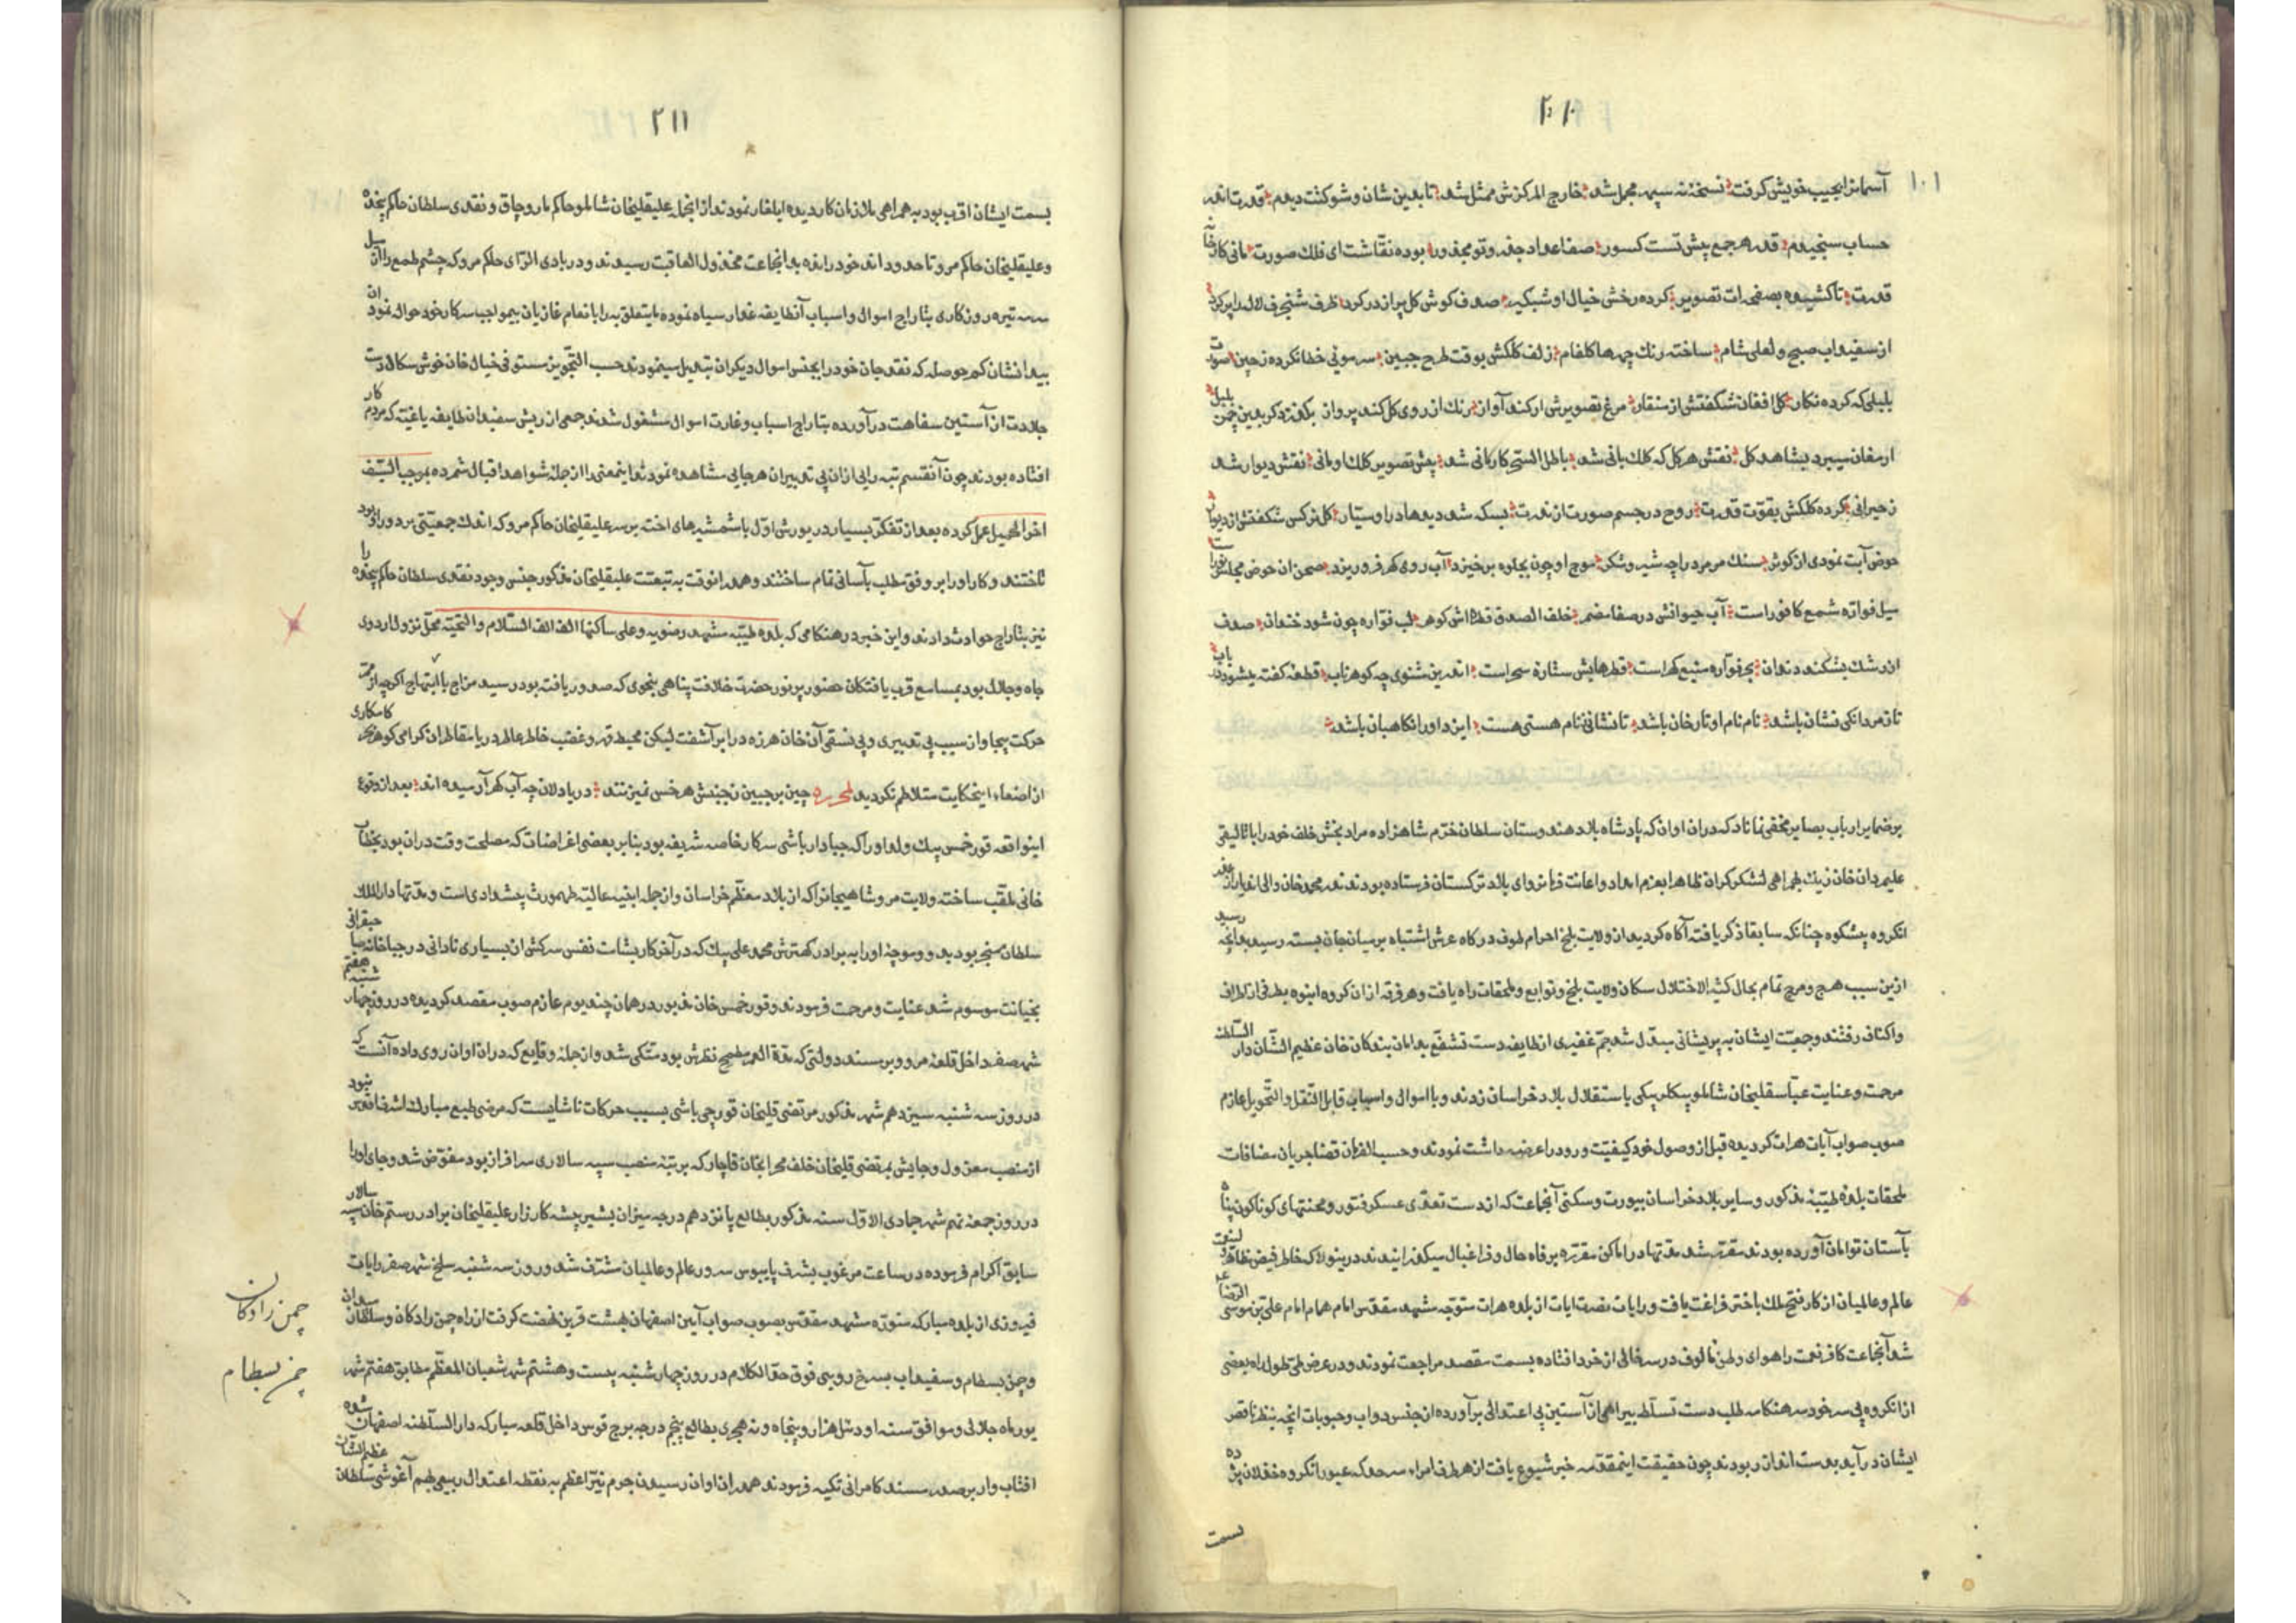 ۲۱۰
۱۰۱
آسمانرا بجیب خویش کرفته نسخهٔ نه سپهر مجمل شد خارج المرکزش ممثل شد تا بدین شان و شوکتت دیدم قدرت
حساب سنجیدم قدر هر جمع پیش تست کسور صفاعداد جفر و تو مجذور بوده نقاشت ای فلک صورت مانی کارخانهٔ
قدرت تا کشیده بصفحه ات تصویر کرده رخش خیال او شبکیر صدف کوش کل پر از در کرد ظرف شنجرف لاله را پر کرد
از سفیداب صبح و لعلی شام ساخته رنک چهرها کلفام زلف کلکش بوقت طرح جبین سر مویی خطا نکرده ز چین
بلبلی که کرده نکار کل افغان شکفتش از منقار مرغ تصویرش ار کند آواز رنک از روی کل کند پرواز
ارمغان میبرد بشاهد کل نقش هر کل که کلک بانی شد باطل السحر کار مانی شد پیش تصویر کلک او مانی نقش دیوار شد
ز حیرانی کرده کلکش بقوت قدرت روح در جسم صورت از ندرت بسکه شد دیدها درا و سیار کل نرکس شکفتش از دیوار
حوض آبت نمودی از کوثر سنک مرمر در او چه شیر و شکر موج او چون بجلوه برخیزد آب روی کهر فرو ریزد صحن ان حوض مجلس
سیل فواره شمع کافور است آب حیوانش در صفا مضمر خلف الصدق قطره اش کوهر لب فواره چون شود خندان صدف
از رشک بشکند دندان بحر فواره منبع کهر است قطرهایش ستاره سحر است اندرین مثنوی چه کوهر ناب قطعهٔ کفته میشود
تا ز مردانکی نشان باشد نام نام او تار خان باشد تا نشانی ز نام هستی هست ایزد او را نکاهبان باشد
بر ضمایر ارباب بصایر مخفی نماناد که دران اوان که پادشاه بلاد هندوستان سلطان خرم شاهزاده مراد بخش خلف خود را باتالیقی
علیمردان خان زیک بهمراهی لشکر کران ظاهرا بعزم امداد و اعانت فرمانروای بلاد ترکستان فرستاده بودند ندر محمد خان والی انها از
انکروه بیشکوه چنانکه سابقا ذکر یافت آکاه کردید از ولایت بلخ احرام طوف درکاه عرش اشتباه بر میان جان بسته رسید بدانچه رسید
ازین سبب هرج و مرج تمام بحال کثیر الاختلال سکان ولایت بلخ و توابع و ملحقات راه یافت و هر فرقه از ان کروه انبوه بطرفی از اطراف
و اکناف رفتند و جمعیت ایشان به پریشانی مبدل شد جم غفیری از طایفه دست تشفع بدامان بندکان خان عظیم الشان دار السلطنه
مرحمت و عنایت عباسقلیخان شاملو بیکلربیکی باستقلال بلاد خراسان زدند و با اموال و اسباب قابل النقل و التحویل عازم
صوب صواب آیات هرات کردیده قبل از وصول خود کیفیت ورود را عرضه داشت نمودند و حسب الفرمان قضا جریان مضافات
ملحقات بلدهٔ طیبهٔ مذکور و سایر بلاد خراسان بیورت و سکنی آنجماعت که از دست تعدی عسکر فتور و محنتهای کوناکون پناه
بآستان توامان آورده بودند مقرر شد مدتها در اماکن مقرره برفاه حال و فراغبال میکذرانیدند درینولا که خاطر فیض
عالم و عالمیان از کار فتح ملک باختر فراغت یافت و رایات نصرت ایات از بلده هرات متوجه مشهد مقدس امام همام امام علی بن موسی الرضا
شد آنجماعت کافر نعمت را هوای وطن مالوف در سر خالی از خرد افتاده بسمت مقصد مراجعت نمودند و در عرض طی طول راه بعضی
از انکروه بی سر خود سر هنکامه طلب دست تسلط ببیراهی از آستین بی اعتدالی برآورده از جنس دواب و حبوبات انچه بنظر ناقص
ایشان در آید بدست انداز ربودند چون حقیقت اینمقدمه خبر شیوع یافت از هر طرف امراء سرحد که عبور انکروه خذلان پژوه
بسمت
۲۱۱
بسمت ایشان اقرب بود به همراهی ملازمان کاردیده ایلغار نمودند از انجمله علیقلیخان شاملو حاکم ماروچاق و نقدی سلطان حاکم پنجده
و علیقلیخان حاکم مرو تا حدود اندخود رانده بدانجماعت مخذول العاقبت رسیدند و در بادی الرای حاکم مرو که چشم طمع را از
سرمه تیره روزکاری بتاراج اموال و اسباب آنطایفه غدار سیاه نموده مایتعلق به را بانعام غازیان بیمواجب سرکار خود حواله نمود
بیدانشان کم حوصله که نقد جان خود را بجنس اموال دیکران تبدیل مینمودند حسب التجویز مستوفی خیال خان خوش سکال دست
جلادت از آستین سفاهت درآورده بتاراج اسباب و غارت اموال مشغول شدند جمعی از ریش سفیدان طایفه یاغیه که مردم کار
افتاده بودند چون آنقسم تبه رایی از ان بی تدبیران هرجایی مشاهده نمودند اینمعنی را از جملهٔ شواهد اقبال شمرده بموجب السیف
اخر الحیل عمل کرده بعد از تفکر بسیار در یورش اول با شمشیرهای اخته بر سر علیقلیخان حاکم مرو که اندک جمعیتی بر دور او بود
تاختند و کار او را بر وفق مطلب بآسانی تمام ساختند و همدرانوقت به تبعیت علیقلیخان مذکور جنس وجود نقدی سلطان حاکم پنجده را
نیز بتاراج حوادث دادند و این خبر در هنکامی که بلدهٔ طیبه مشهد رضویه و علی ساکنها الف الف السلام و التحیة محل نزول اردوی
جاه و جلال بود بمسامع قرب یافتکان حضور پر نور حضرت خلافت پناهی بنحوی که صدور یافته بود رسید مزاج با ابتهاج اکرچه از
حرکت بیجا و از سبب بی تدبیری و بی نسقی آن خان هرزه درا بر آشفت لیکن محیط قهر و غضب خاطر عالم دریا مقاطر ان کرامی کوهر بحر کامکاری
از اصغاء اینحکایت متلاطم نکردید لمحرره چین بر جبین ز جنبش هر خس نمیزنند دریا دلان چه آب کهر آرمیده اند بعد از وقوع
اینواقعه قورخمس بیک ولد اوراکه جبادار باشی سرکار خاصه شریفه بود بنابر بعضی اغراضات که مصلحت وقت دران بود بخطاب
خانی ملقب ساخته ولایت مرو شاهیجانرا که از بلاد معظم خراسان و از جمله ابنیه عالیهٔ طهمورث پیشدادی است و مدتها دار الملک
سلطان سنجر بود بدو و موجهٔ او را به برادر کهترش محمد علی بیک که در آخر کار بشات نفس سرکش از بسیاری نادانی در جباخانه
بخیانت موسوم شد عنایت و مرحمت فرمودند و قورخمس خان مذبور در همان چند یوم عازم صوب مقصد کردیده در روز چهار شنبه هفتم
شهر صفر داخل قلعهٔ مرو و بر مسند دولتی که مدة العمر مطمح نظرش بود متکی شد و از جمله وقایع که دران اوان روی داده آنست که
در روز سه شنبه سیزدهم شهر مذکور مرتضی قلیخان قورچی باشی بسبب حرکات ناشایست که مرضی طبع مبارک اشرف اقدس نبود
از منصب معزول و جایش بمرتضی قلیخان خلف محرابخان قاجار که برتبهٔ منصب سپه سالاری سرافراز بود مفوض شد و جای او را
در روز جمعه نهم شهر جمادی الاول سنه مذکور بطالع پانزدهم درجه میزان بشیر بیشه کارزار علیقلیخان برادر رستم خان سپه سالار
سابق اکرام فرموده در ساعت مرغوب بشرف پایبوس سرور عالم و عالمیان مشرف شد و روز سه شنبه سلخ شهر صفر رایات
فیروزی از بلدهٔ مبارکه منوره مشهد مقدس بصوب صواب آیین اصفهان بهشت قرین نهضت کرفت از راه چمن رادکان و سلطان میدان
و چمن بسطام و سفیداب بسرخ روبی فوق حد الکلام در روز چهار شنبه بیست و هشتم شهر شعبان المعظم مطابق هفتم شهر
یورماه جلالی و موافق سنه اودئل هزار و پنجاه و نه هجری بطالع پنجم درجه برج قوس داخل قلعه مبارکه دار السلطنه اصفهان شده
افتاب وار بر صدر مسند کامرانی تکیه فرمودند همدران اوان رسیدن جرم نیر اعظم به نقطه اعتدال ربیعی بهم آغوشی سلطان عظیم الشان
چمن رادکان
چمن بسطام